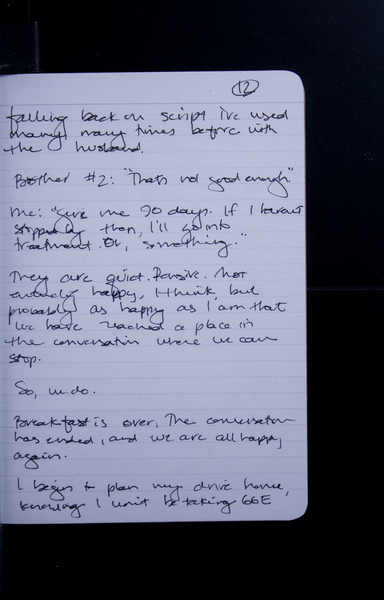 12
falling back on script I've used
many, many times before with
the husband.
Brother #2: "That's not good enough"
Me: "Give me 90 days. If I haven't
stopped by then, I'll go into
treatment. Or, something."
They are quiet. Pensive. Not
entirely happy, I think, but
probably as happy as I am that
we have reached a place in
the conversation where we can
stop.
So, we do.
Breakfast is over. The conversation
has ended, and we are all happy
again.
I begin to plan my drive home,
knowing I won't be taking 66E